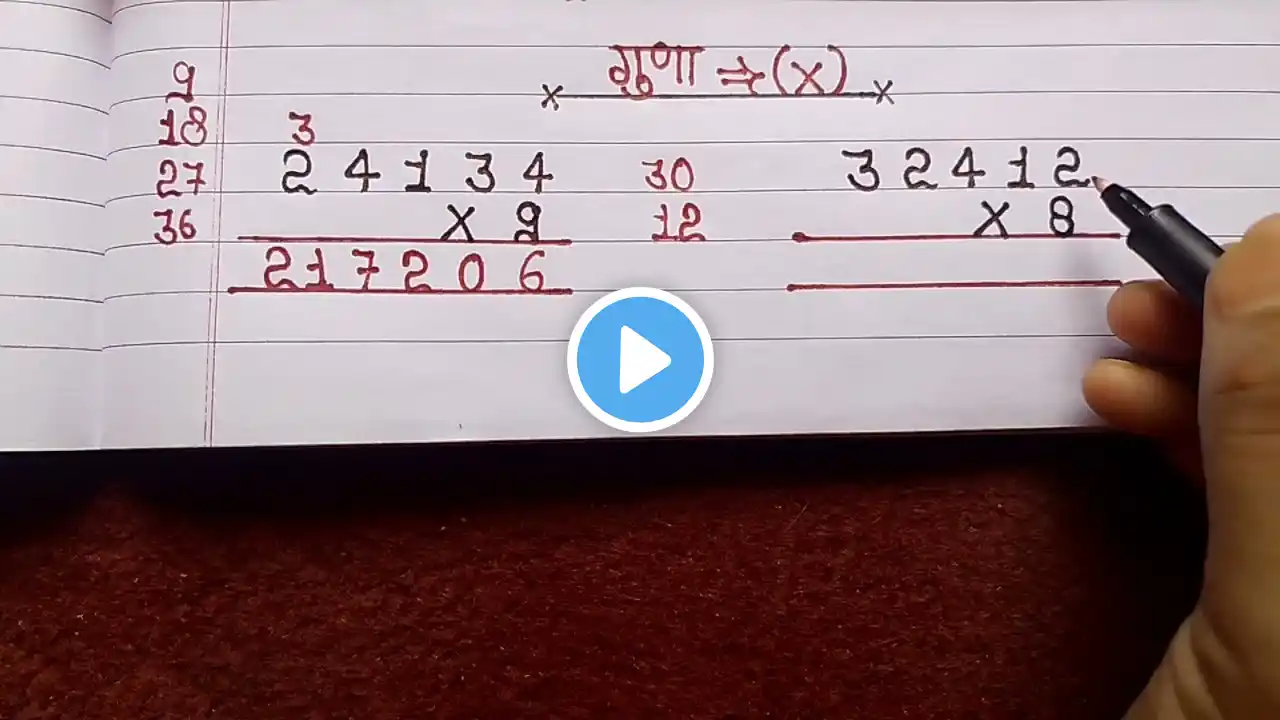 गुणा ⇒ (×)
9
18
27
36
3
24134
× 9
217206
30
12
32412
× 8